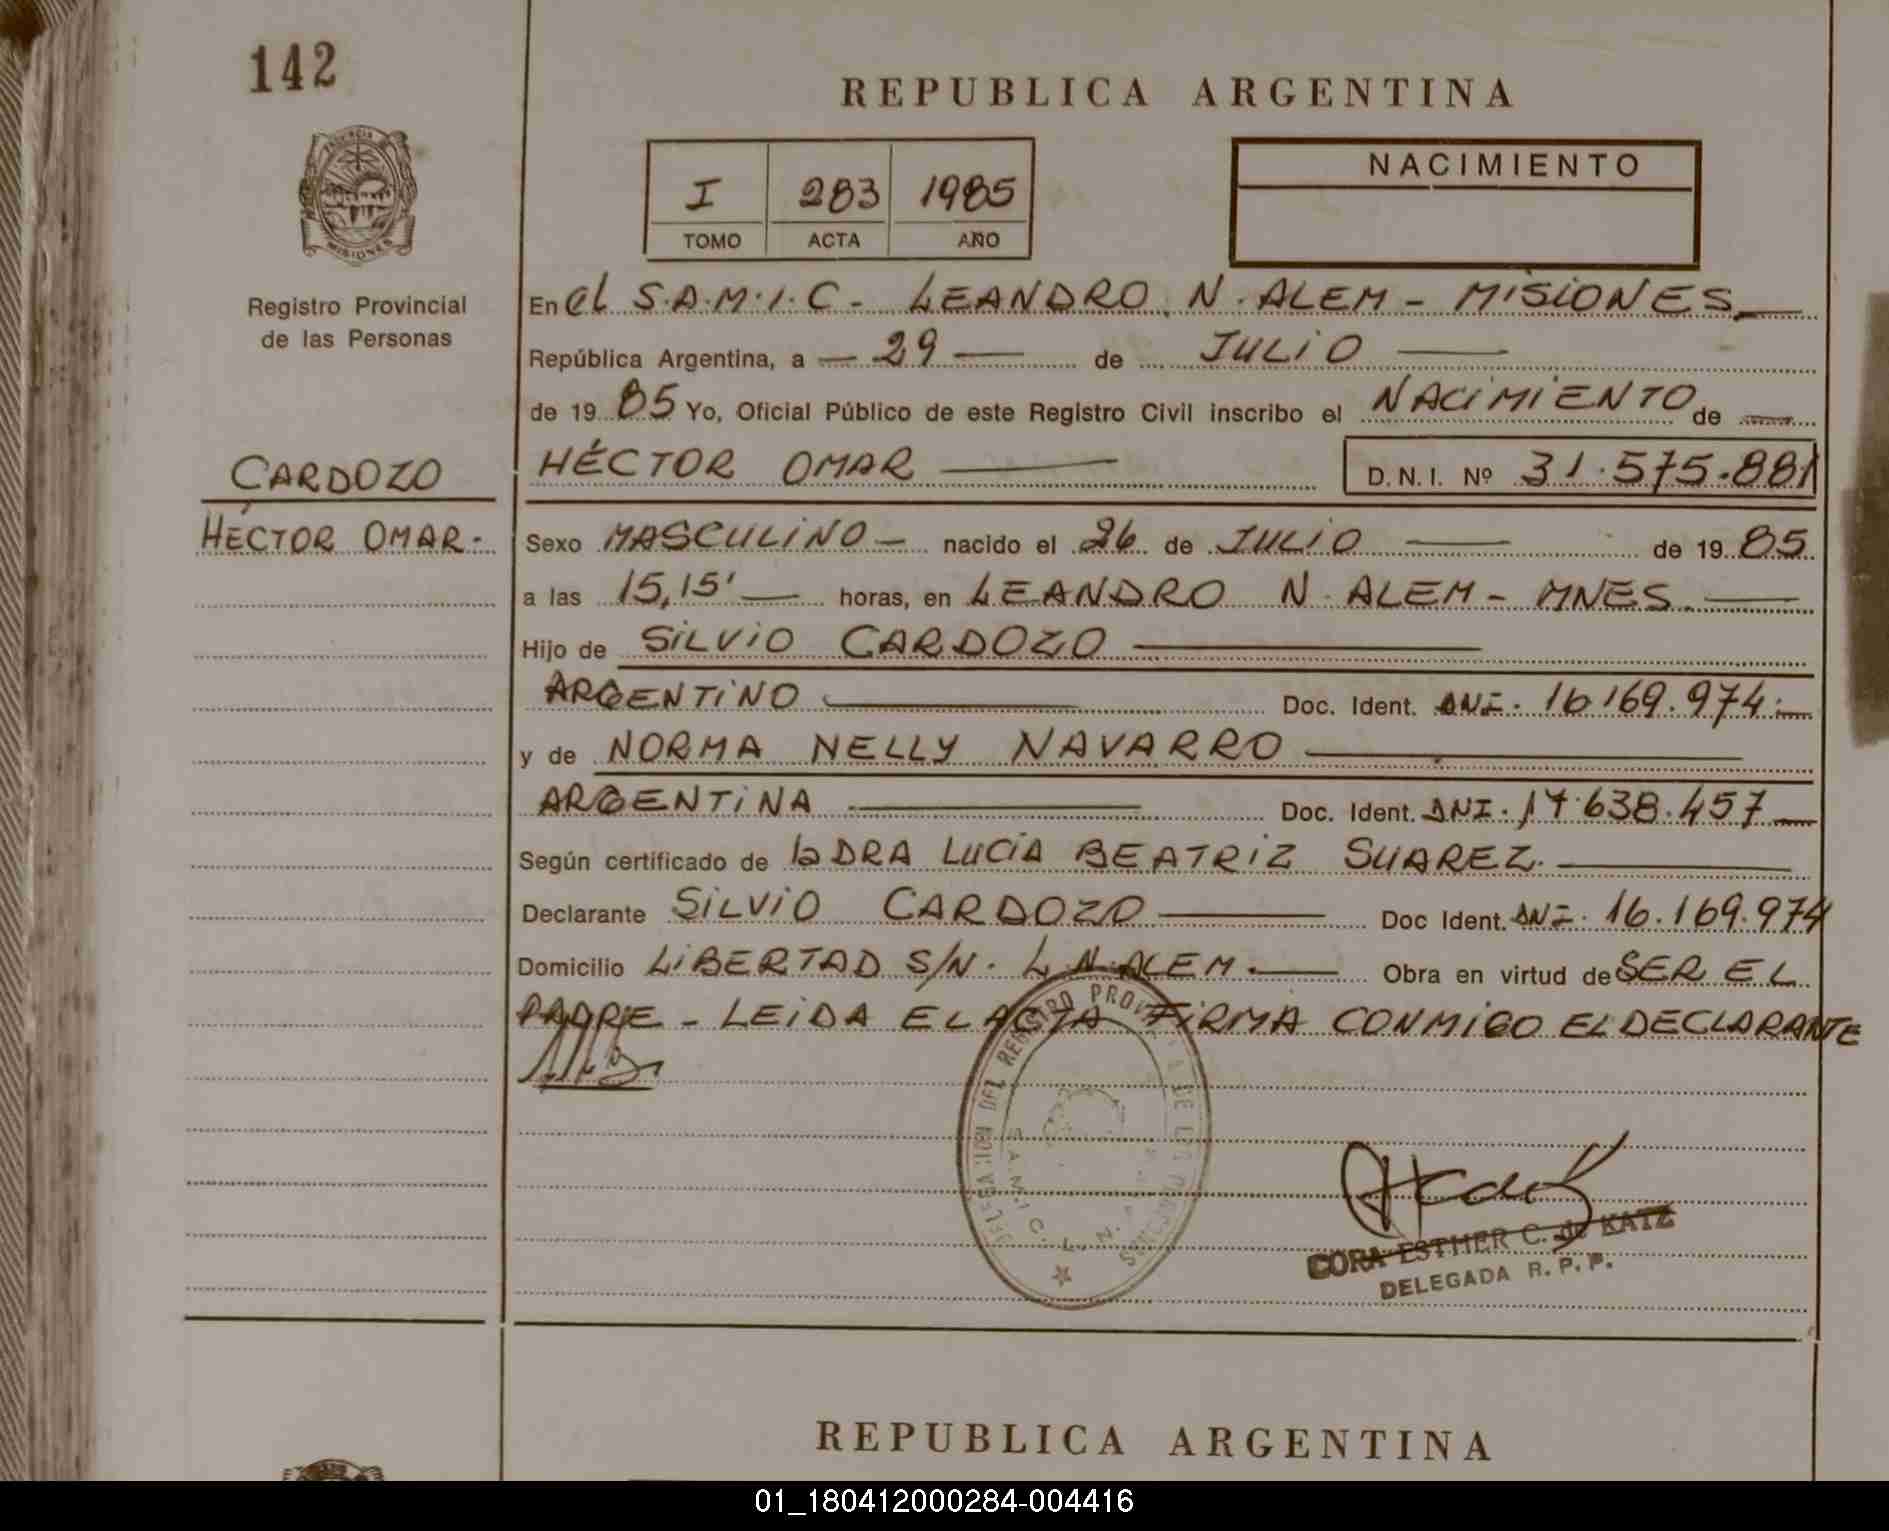 142
REPUBLICA ARGENTINA
I 283 1985
TOMO ACTA AÑO
NACIMIENTO
MISIONES
Registro Provincial
de las Personas
CARDOZO
HÉCTOR OMAR.
En el S.A.M.I.C - LEANDRO N. ALEM - MISIONES
República Argentina, a 29 de JULIO
de 19 85 Yo, Oficial Público de este Registro Civil inscribo el NACIMIENTO de
HÉCTOR OMAR D.N.I. Nº 31.575.881
Sexo MASCULINO nacido el 26 de JULIO de 19 85
a las 15,15' horas, en LEANDRO N. ALEM - MNES.
Hijo de SILVIO CARDOZO
ARGENTINO Doc. Ident. DNI. 16.169.974
y de NORMA NELLY NAVARRO
ARGENTINA Doc. Ident. DNI. 17.638.457
Según certificado de la DRA LUCIA BEATRIZ SUAREZ.
Declarante SILVIO CARDOZO Doc Ident. DNI. 16.169.974
Domicilio LIBERTAD S/N. L.N.ALEM. Obra en virtud de SER EL
PADRE - LEIDA EL ACTA FIRMA CONMIGO EL DECLARANTE
DELEGACION DEL REGISTRO
S.A.M.I.C. L.N.
CORA ESTHER C. de KATZ
DELEGADA R.P.P.
REPUBLICA ARGENTINA
01_180412000284-004416